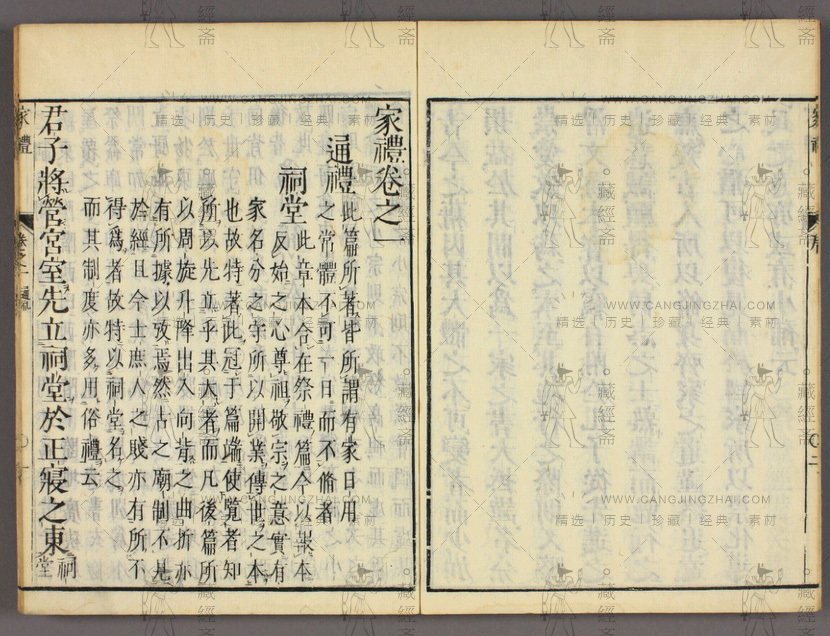 家禮卷之一
通禮 此篇所著皆所謂有家日用
之常體不可一日而不脩者
祠堂 此章本合在祭禮篇今以報本
反始之心尊祖敬宗之意實有
家名分之守所以開業傳世之本
也故特著此冠于篇端使覽者知
所以先立乎其大者而凡後篇所
以周旋升降出入向背之曲折亦
有所據以攷焉然古之廟制不見
於經且今士庶人之賤亦有所不
得爲者故特以祠堂名之
而其制度亦多用俗禮云
君子將營宮室先立祠堂於正寢之東 祠
堂
家禮
WWW.CANGJINGZHAI.COM
精选 | 历史 | 珍藏 | 经典 | 素材
藏經斋